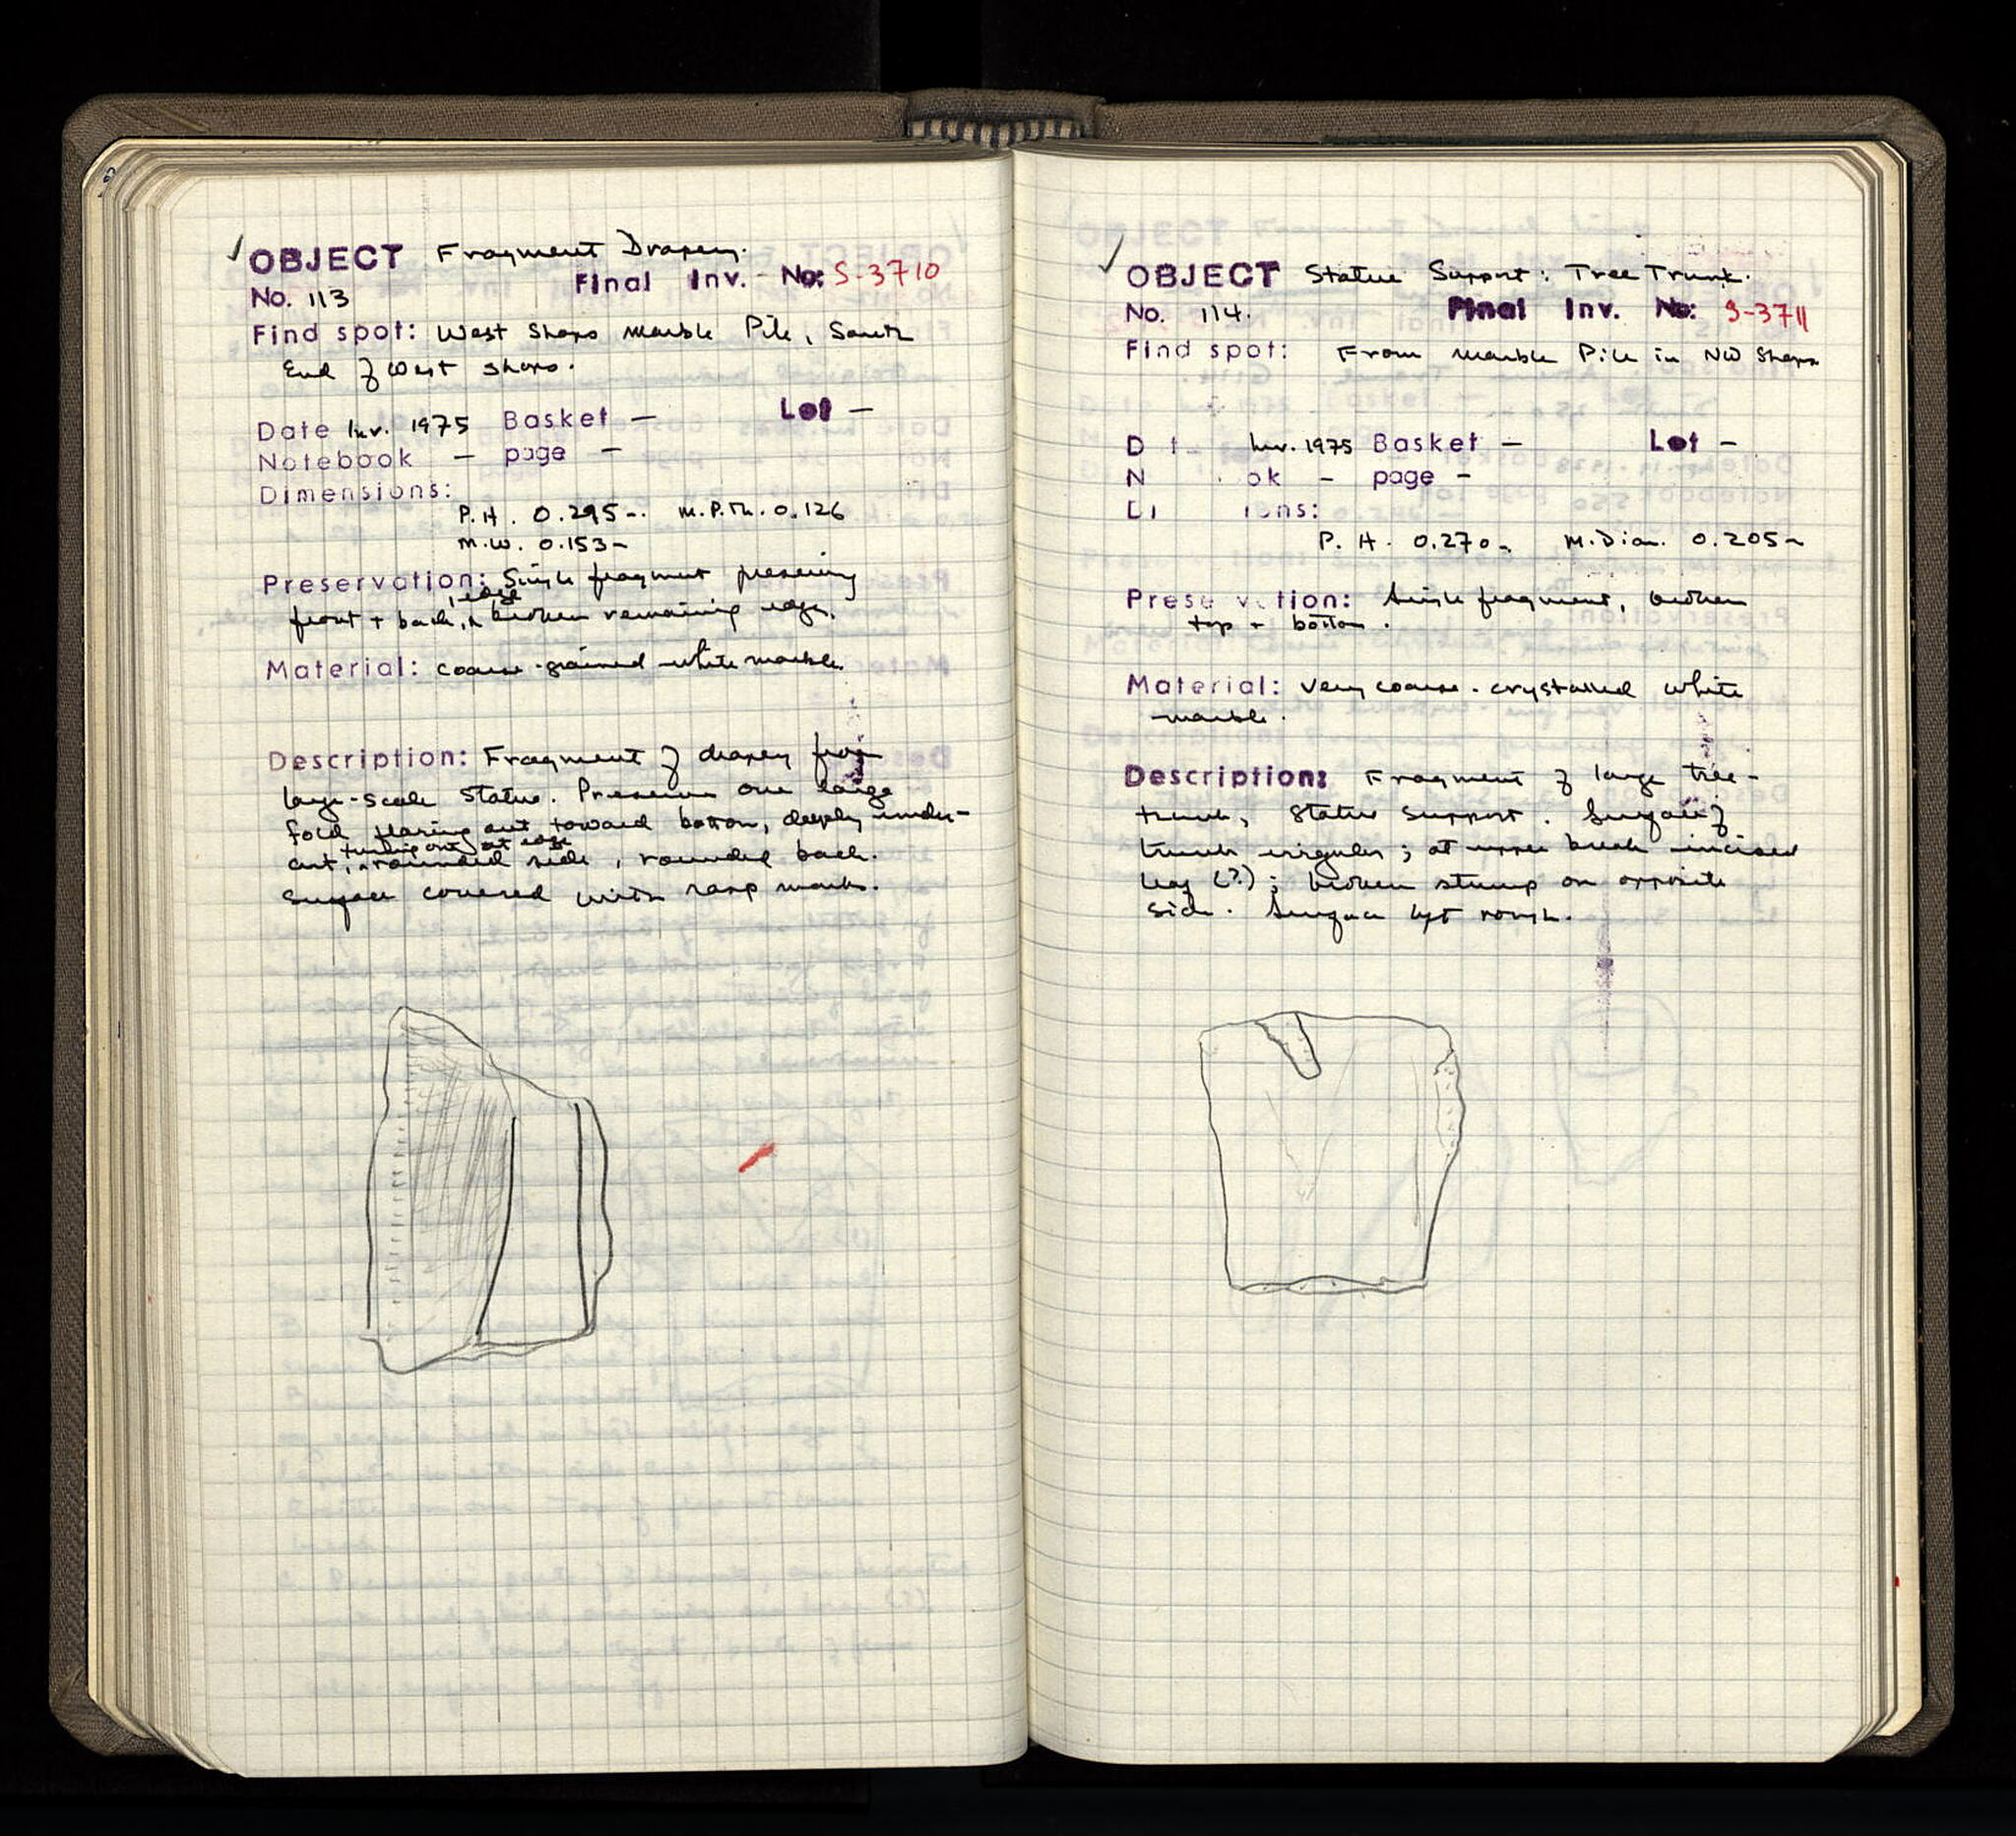 OBJECT Fragment Drapery.
Final Inv. No: S-3710
No. 113
Find spot: West Shops Marble Pile, South
End of West Shops.
Date Inv. 1975 Basket — Lot —
Notebook — page —
Dimensions:
P.H. 0.295-. M.P.Th. 0.126
M.W. 0.153-
Preservation: Single fragment preserving
, edge
front + back, broken remaining edges.
Material: coarse-grained white marble.
Description: Fragment of drapery from
large-scale statue. Preserves one large
fold flaring out toward bottom, deeply under-
turning out at edge
cut, rounded side, rounded back.
Surface covered with rasp marks.
OBJECT Statue Support: Tree Trunk.
No. 114. Final Inv. No: S-3711
Find spot: From Marble Pile in NW Shops
D t Inv. 1975 Basket — Lot —
N ok - page -
Di ions:
P.H. 0.270-. M.Diam. 0.205-
Prese v tion: Single fragment, broken
top + bottom.
Material: Very coarse-crystalled white
marble.
Description: Fragment of large tree-
trunk, statue support. Surface of
trunk irregular; at upper break incised
leaf (?); broken stump on opposite
side. Surface left rough.